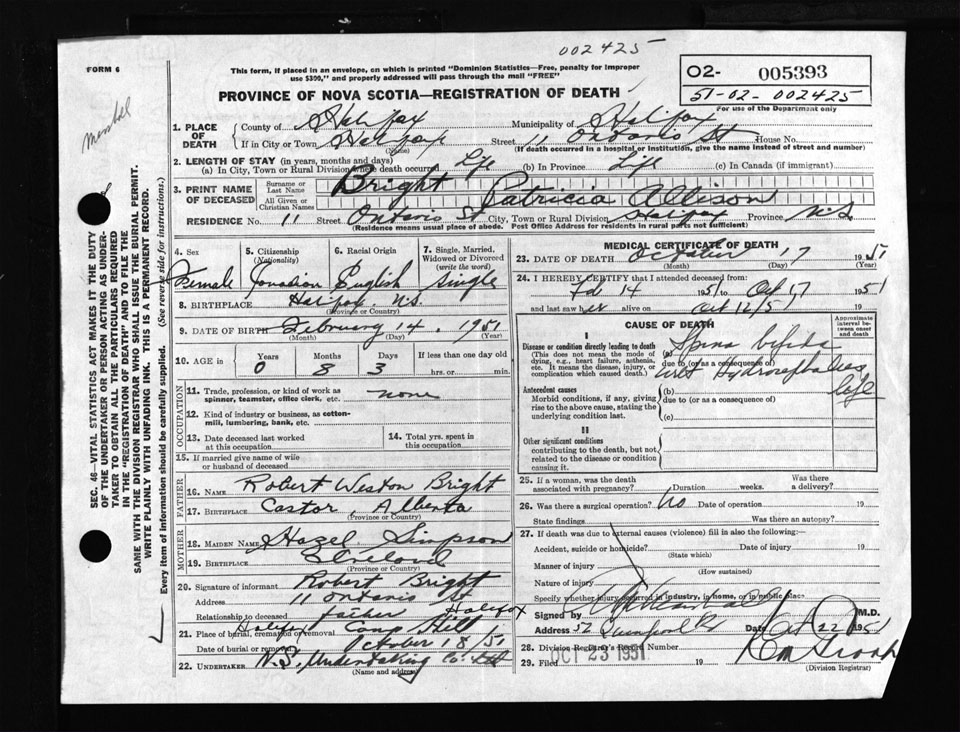 002425
FORM 6
This form, if placed in an envelope, on which is printed "Dominion Statistics—Free, penalty for improper
use $300," and properly addressed will pass through the mail "FREE"
O2- 005393
51-02-002425
For use of the Department only
PROVINCE OF NOVA SCOTIA—REGISTRATION OF DEATH
1. PLACE OF DEATH County of Halifax Municipality of Halifax
If in City or Town Halifax (Name) Street 11 Ontario St House No.
(If death occurred in a hospital or institution, give the name instead of street and number)
2. LENGTH OF STAY (in years, months and days)
(a) In City, Town or Rural Division where death occurred Life (b) In Province Life (c) In Canada (if immigrant)
3. PRINT NAME OF DECEASED Surname or Last Name Bright
All Given or Christian Names Patricia Allison
RESIDENCE No. 11 Street Ontario St City, Town or Rural Division Halifax Province N.S.
(Residence means usual place of abode. Post Office Address for residents in rural parts not sufficient)
4. Sex 5. Citizenship (Nationality) 6. Racial Origin 7. Single, Married, Widowed or Divorced (write the word)
Female Canadian English Single
8. BIRTHPLACE Halifax N.S.
(Province or Country)
9. DATE OF BIRTH February 14. 1951
(Month) (Day) (Year)
10. AGE in Years Months Days If less than one day old
0 8 3 hrs. or min.
OCCUPATION
11. Trade, profession, or kind of work as spinner, teamster, office clerk, etc. none
12. Kind of industry or business, as cotton-mill, lumbering, bank, etc.
13. Date deceased last worked at this occupation
14. Total yrs. spent in this occupation
15. If married give name of wife or husband of deceased
FATHER
16. NAME Robert Weston Bright
17. BIRTHPLACE Castor, Alberta
(Province or Country)
MOTHER
18. MAIDEN NAME Hazel Simpson
19. BIRTHPLACE Ireland
(Province or Country)
20. Signature of informant Robert Bright
Address 11 Ontario St
Relationship to deceased father Halifax
21. Place of burial, cremation or removal Halifax Camp Hill
Date of burial or removal October 18/51
22. UNDERTAKER N.S. Undertaking Co. Ltd
(Name and address)
MEDICAL CERTIFICATE OF DEATH
23. DATE OF DEATH October 17 1951
(Month) (Day) (Year)
24. I HEREBY CERTIFY that I attended deceased from:
Feb 14 1951 to Oct 17 1951
and last saw her alive on Oct 16/51 19
CAUSE OF DEATH
Approximate interval between onset and death
I
Disease or condition directly leading to death
(This does not mean the mode of dying, e.g., heart failure, asthenia, etc. It means the disease, injury, or complication which caused death.)
(a) Spina bifida
due to (or as a consequence of)
with Hydrocephalus
Antecedent causes
Morbid conditions, if any, giving rise to the above cause, stating the underlying condition last.
(b) life
due to (or as a consequence of)
(c)
II
Other significant conditions
contributing to the death, but not related to the disease or condition causing it.
25. If a woman, was the death associated with pregnancy? Duration weeks. Was there a delivery?
26. Was there a surgical operation? No Date of operation 19
State findings Was there an autopsy?
27. If death was due to external causes (violence) fill in also the following:—
Accident, suicide or homicide? Date of injury 19
(State which)
Manner of injury
(How sustained)
Nature of injury
Specify whether injury occurred in industry, in home, or in public place
Signed by M.D.
Address 52 Date Oct 22 1951
28. Division Registrar's Record Number
29. Filed OCT 23 1951 19
(Division Registrar)
SEC. 46—VITAL STATISTICS ACT MAKES IT THE DUTY
OF THE UNDERTAKER OR PERSON ACTING AS UNDER-
TAKER TO OBTAIN ALL THE PARTICULARS REQUIRED
IN THE "REGISTRATION OF DEATH" AND TO FILE THE
SAME WITH THE DIVISION REGISTRAR WHO SHALL ISSUE THE BURIAL PERMIT.
WRITE PLAINLY WITH UNFADING INK. THIS IS A PERMANENT RECORD.
Every item of information should be carefully supplied. (See reverse side for instructions.)